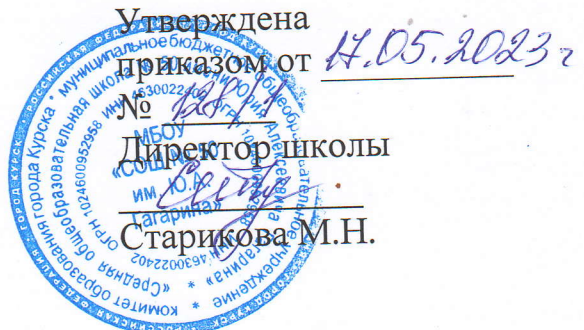 Утверждена
приказом от 17.05.2023 г
№ 128/1
Директор школы
Старикова М.Н.
РОССИЙСКАЯ ФЕДЕРАЦИЯ * ГОРОД КУРСК
комитет образования города Курска * муниципальное бюджетное общеобразовательное учреждение
«Средняя общеобразовательная школа
Алексеевича Гагарина» *
ОГРН 1024600952958 ИНН 4630022402
МБОУ
«СОШ
им. Ю.А.
Гагарина»